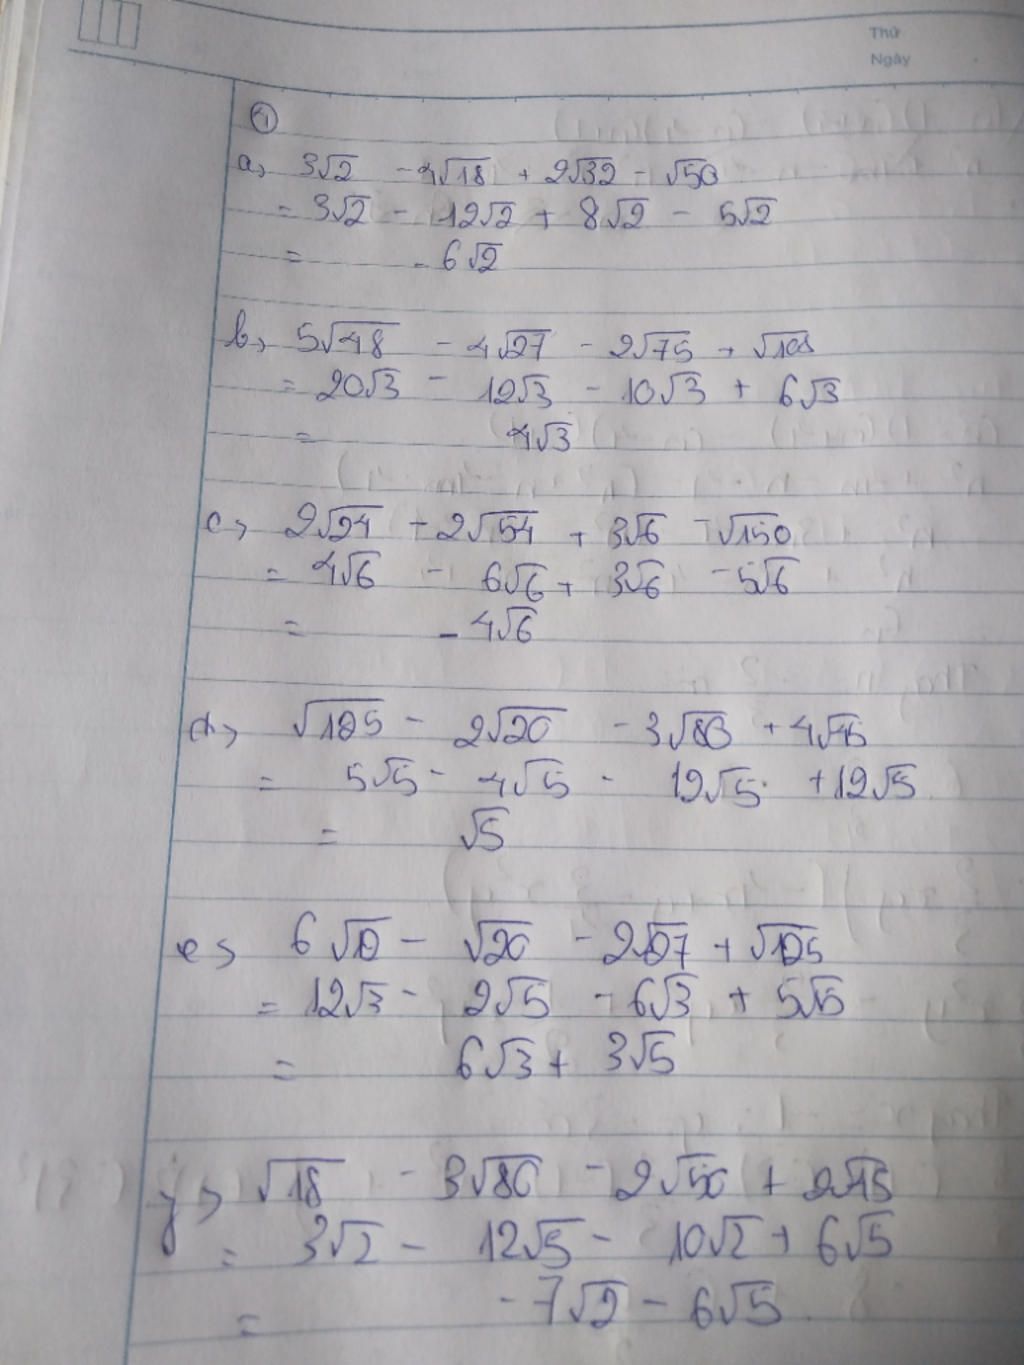 Thứ
Ngày
①
a, 3√2 - 4√18 + 2√32 - √50
= 3√2 - 12√2 + 8√2 - 5√2
= -6√2
b, 5√48 - 4√27 - 2√75 + √108
= 20√3 - 12√3 - 10√3 + 6√3
= 4√3
c, 2√24 - 2√54 + 3√6 - √150
= 4√6 - 6√6 + 3√6 - 5√6
= -4√6
d, √125 - 2√20 - 3√80 + 4√45
= 5√5 - 4√5 - 12√5 + 12√5
= √5
e, 6√12 - √20 - 2√27 + √125
= 12√3 - 2√5 - 6√3 + 5√5
= 6√3 + 3√5
f, √18 - 3√80 - 2√50 + 2√45
= 3√2 - 12√5 - 10√2 + 6√5
= -7√2 - 6√5